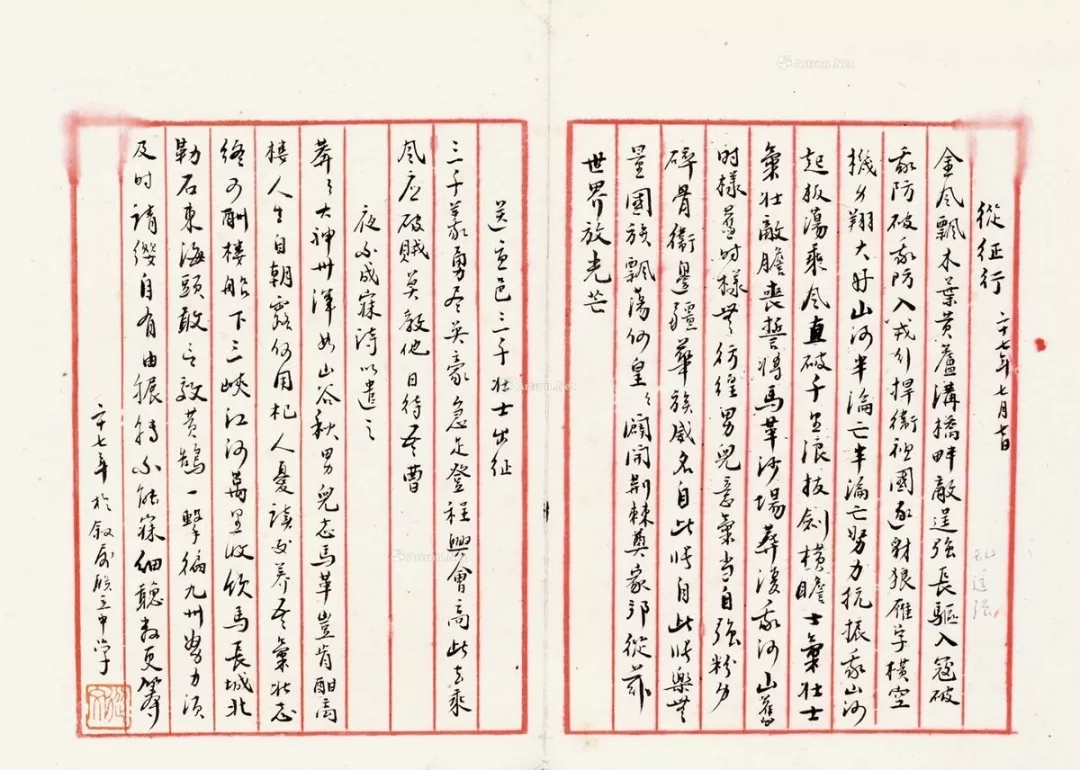 從征行 二十七年七月七日
金風飄木葉黃蘆溝橋畔敵逞強長驅入寇破
我防破我防入戎行捍衛祖國逐豺狼雁字橫空
機群翔大好山河半淪亡半淪亡努力抗振我山河
起板蕩乘風直破千里浪拔劍橫瞻士氣壯士
氣壯敵膽喪誓將馬革沙場葬復我河山舊
時樣舊時樣莫彷徨男兒意氣當自強粉身
碎骨衛邊疆華族威名自此張自此張樂無
量國族飄蕩何皇皇闢開荆棘奠家邦從茲
世界放光芒
亂逞強
送宜邑三千壯士出征
三千義勇盡英豪急走登程興會高此去乘
風应破賊莫教他日待吾曹
夜不成寐詩以遣之
莽莽大神州渾如山谷秋男兒志馬革豈肯酣高
樓人生自朝露何用杞人憂讀書养吾氣壯志
終可酬樓船下三峽江河萬里收飲馬長城北
勒石東海頭敢言效黃鵠一擊徧九州努力須
及时請纓自有由輾轉不能寐細聽數更籌
二十七年於敘屬聯立中学
Artron.Net